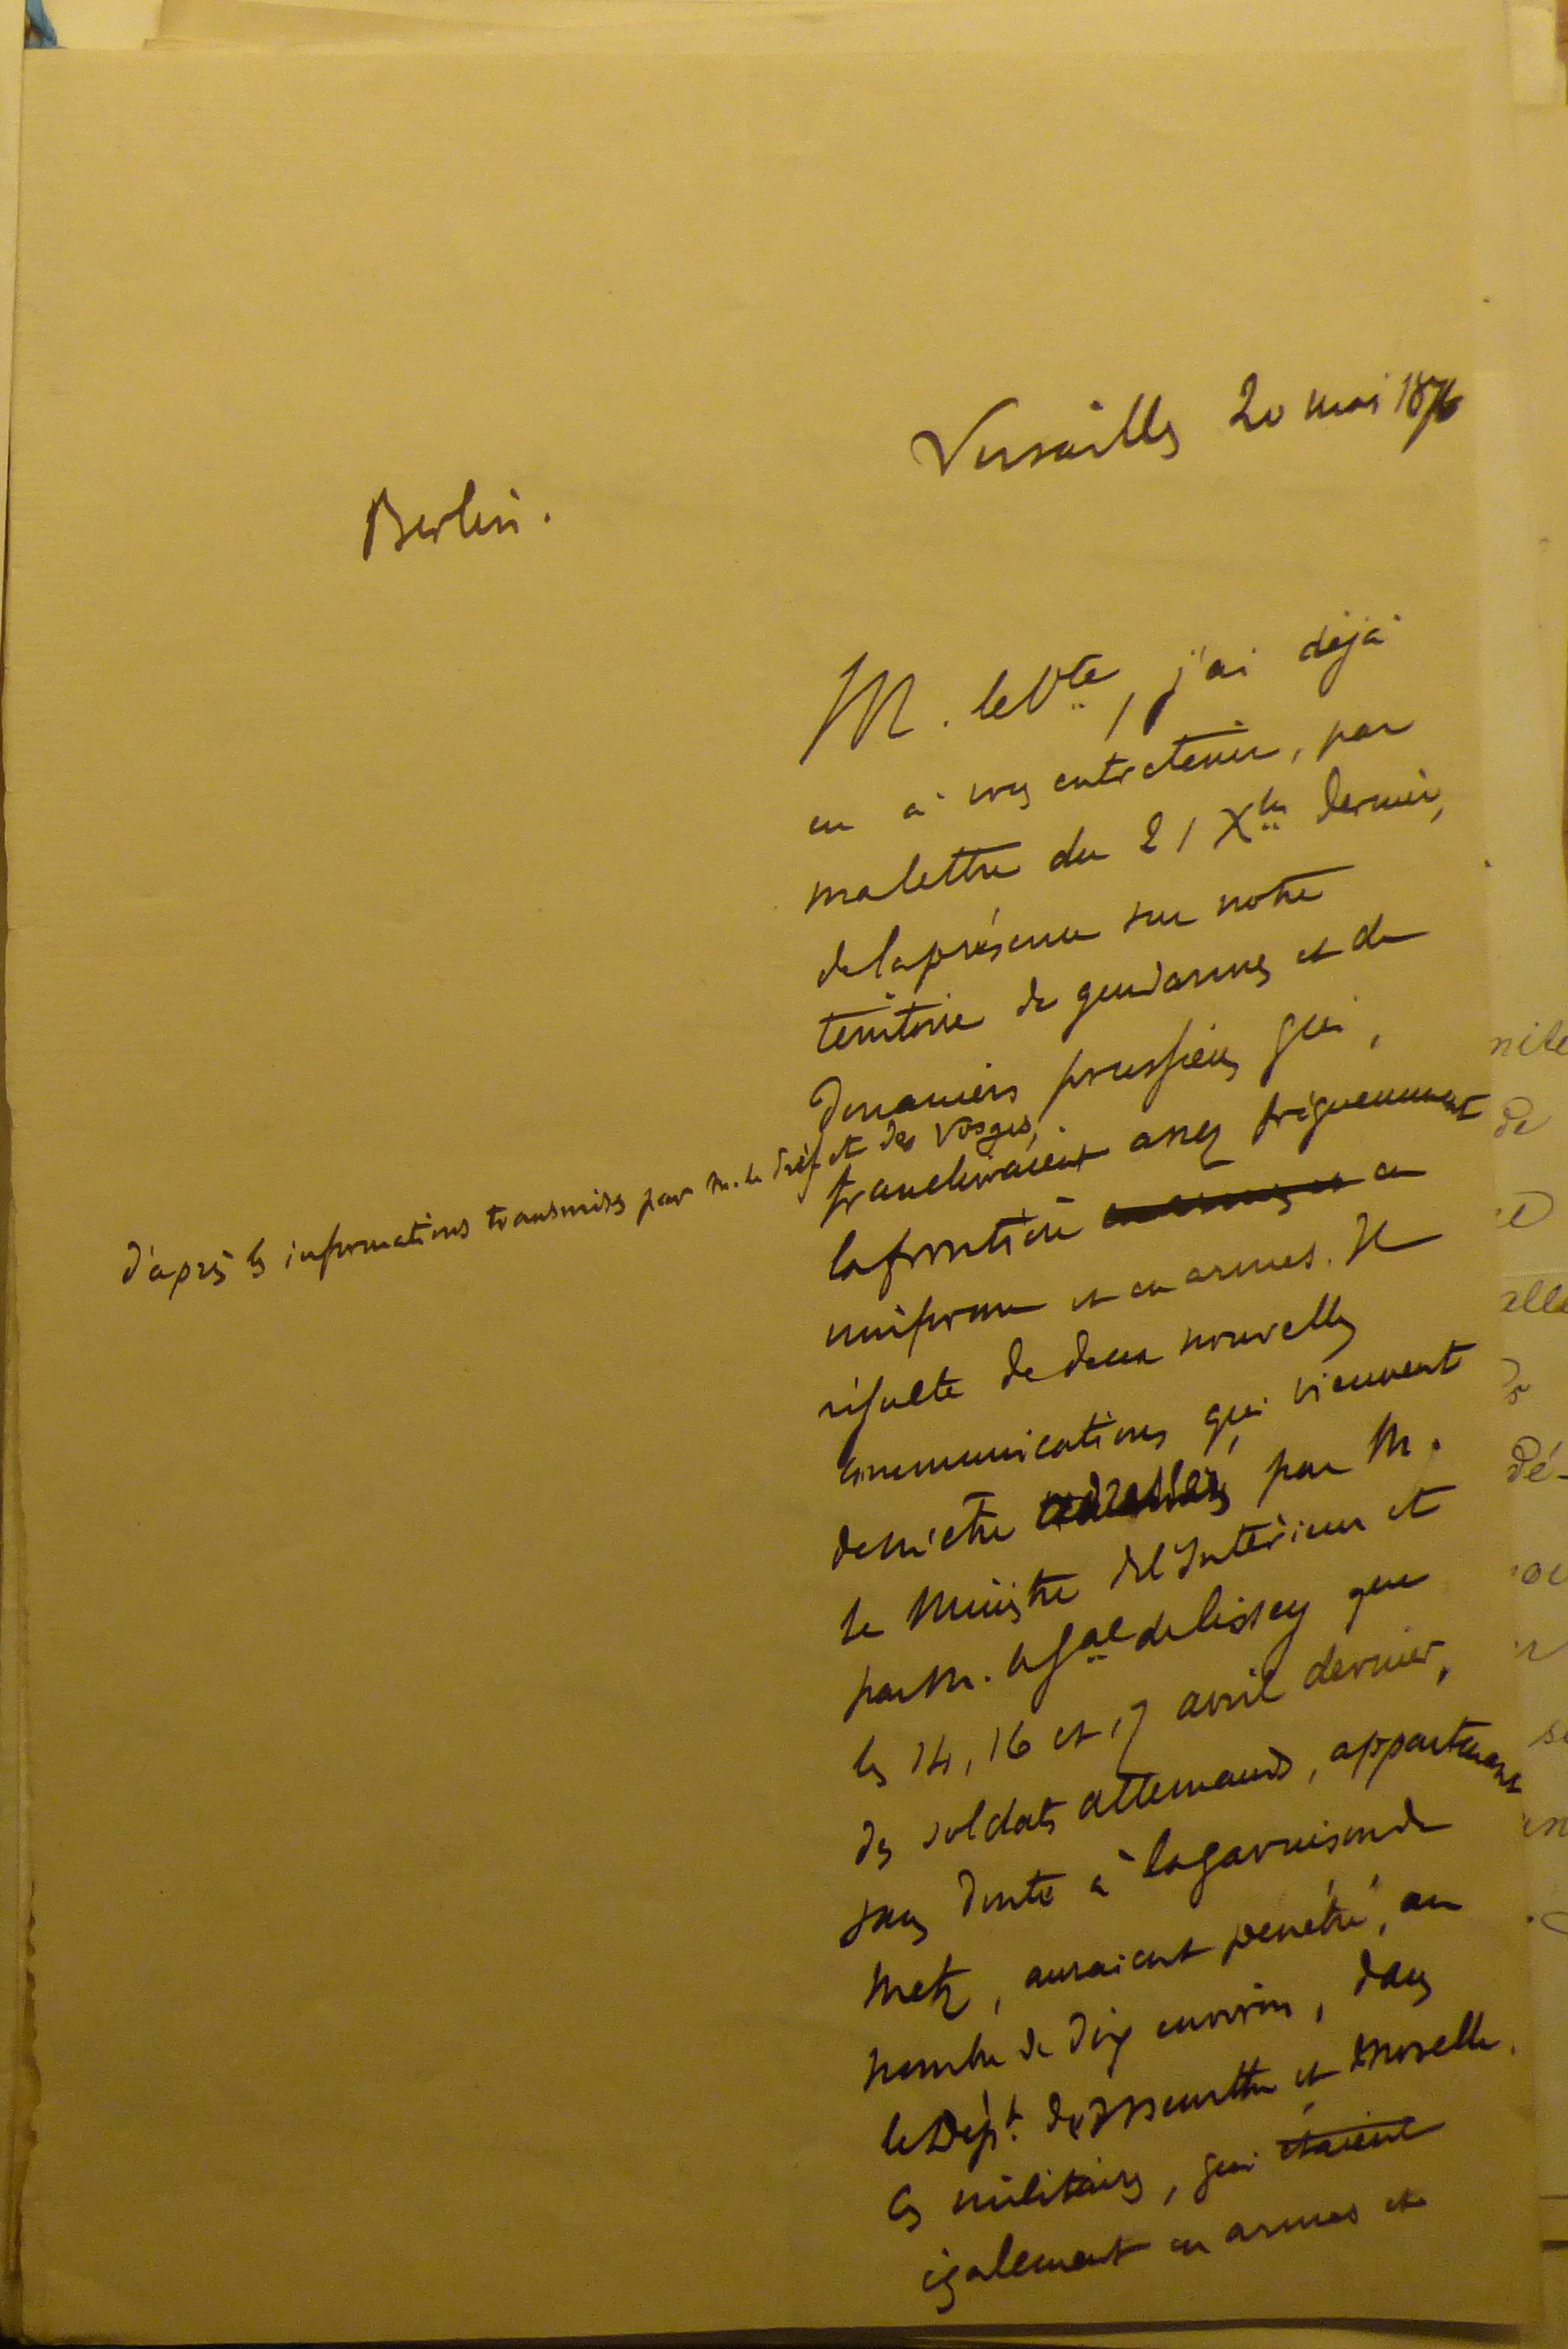 Versailles 20 mai 1876
Berlin.
M. le Vte, j'ai déjà
eu à vous entretenir, par
ma lettre du 21 Xbre dernier,
de la présence sur notre
territoire de gendarmes et de
douaniers prussiens qui,
d'après les informations transmises par M. le Préfet des Vosges,
franchiraient assez fréquemment
la frontière en
uniforme et en armes. Il
résulte de deux nouvelles
communications qui viennent
de m'être adressées par M.
le Ministre de l'Intérieur et
par M. le Gal de Cissey que
les 14, 16 et 17 avril dernier,
des soldats allemands, appartenant
sans doute à la garnison de
Metz, auraient pénétré, au
nombre de dix environ, dans
le Dépt. de Meurthe et Moselle.
Ces militaires, qui étaient
également en armes et